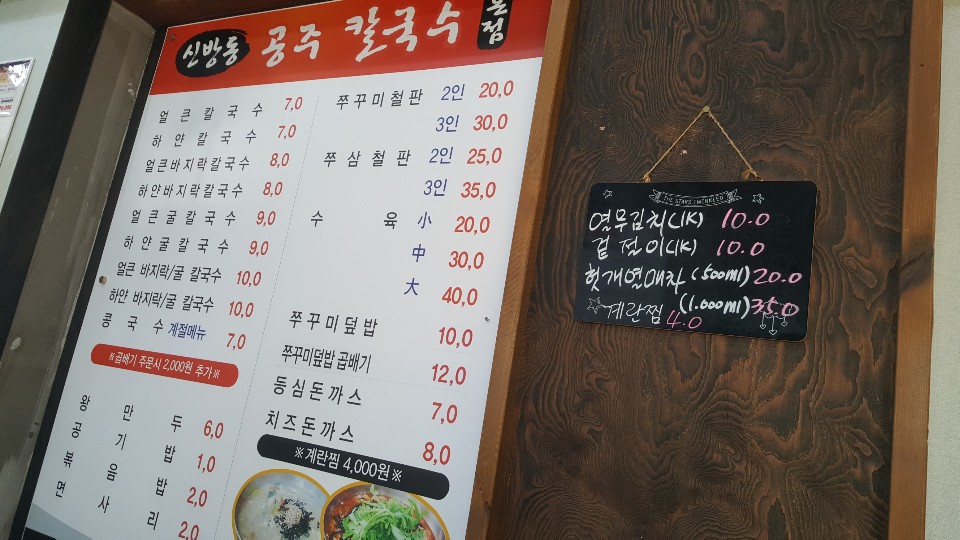 신방동 공주 칼국수 본점
얼큰칼국수 7,0
하얀칼국수 7,0
얼큰바지락칼국수 8,0
하얀바지락칼국수 8,0
얼큰굴칼국수 9,0
하얀굴칼국수 9,0
얼큰 바지락/굴 칼국수 10,0
하얀 바지락/굴 칼국수 10,0
콩국수 계절메뉴 7,0
※곱배기 주문시 2,000원 추가※
왕만두 6,0
공기밥 1,0
볶음밥 2,0
면사리 2,0
쭈꾸미철판 2인 20,0
3인 30,0
쭈삼철판 2인 25,0
3인 35,0
수육 小 20,0
中 30,0
大 40,0
쭈꾸미덮밥 10,0
쭈꾸미덮밥곱배기 12,0
등심돈까스 7,0
치즈돈까스 8,0
※계란찜 4,000원※
THE STARS TWINKLED
열무김치(1K) 10.0
겉절이(1K) 10.0
헛개열매차 (500ml) 20.0
(1.000ml) 35.0
계란찜 4.0